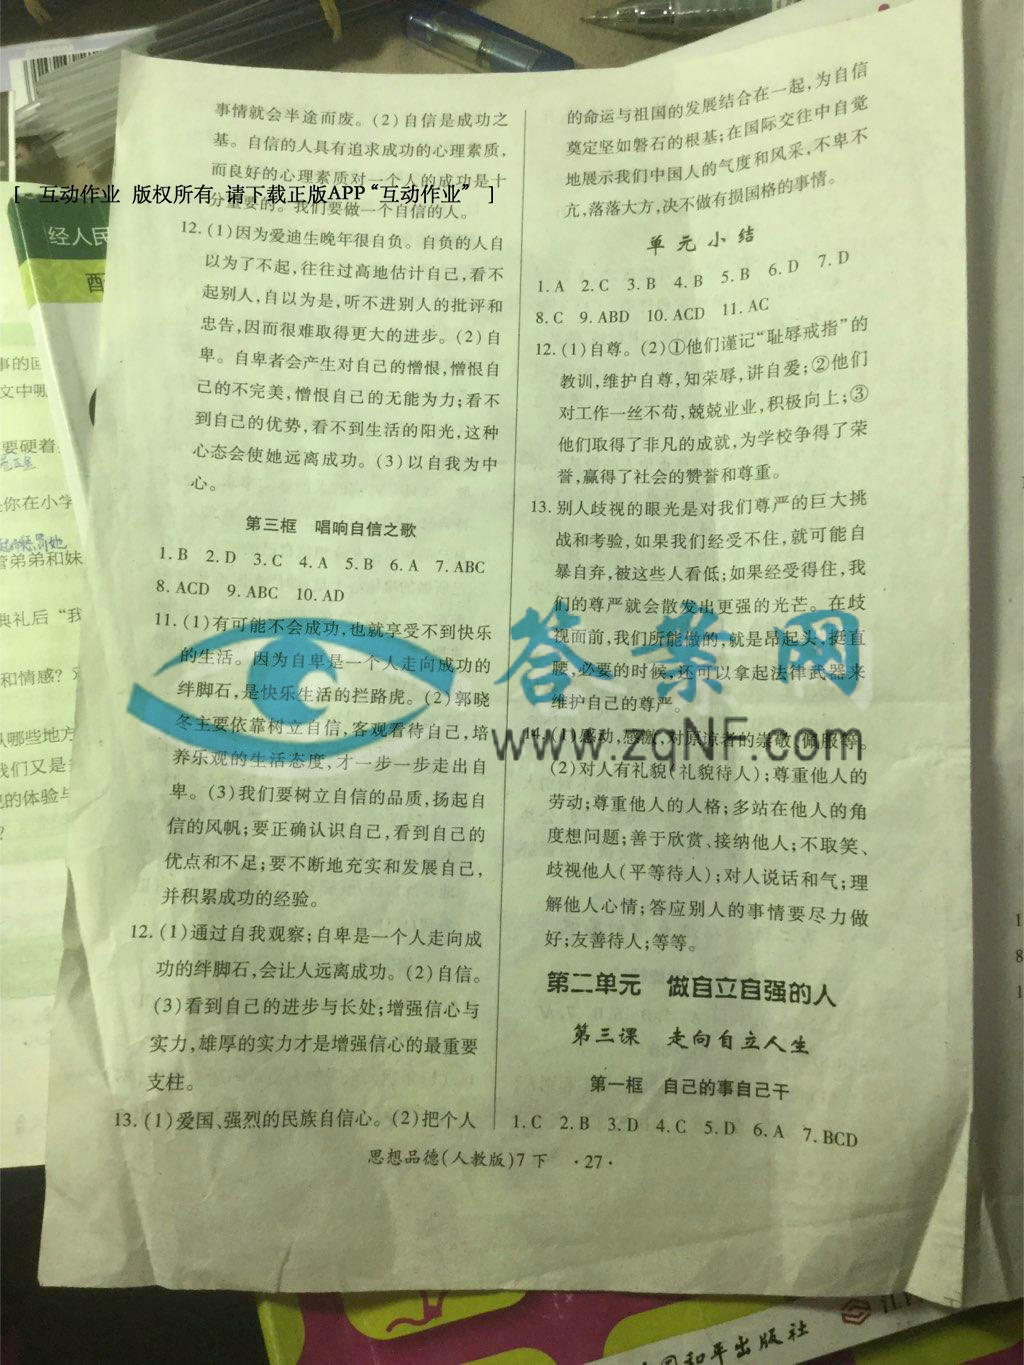 事情就会半途而废。(2)自信是成功之
基。自信的人具有追求成功的心理素质,
而良好的心理素质对一个人的成功是十
分重要的。我们要做一个自信的人。
[ 互动作业 版权所有 请下载正版APP“互动作业” ]
12. (1)因为爱迪生晚年很自负。自负的人自
以为了不起,往往过高地估计自己,看不
起别人,自以为是,听不进别人的批评和
忠告,因而很难取得更大的进步。(2)自
卑。自卑者会产生对自己的憎恨,憎恨自
己的不完美,憎恨自己的无能为力;看不
到自己的优势,看不到生活的阳光,这种
心态会使她远离成功。(3)以自我为中
心。
第三框 唱响自信之歌
1. B 2. D 3. C 4. A 5. B 6. A 7. ABC
8. ACD 9. ABC 10. AD
11. (1)有可能不会成功,也就享受不到快乐
的生活。因为自卑是一个人走向成功的
绊脚石,是快乐生活的拦路虎。(2)郭晓
冬主要依靠树立自信,客观看待自己,培
养乐观的生活态度,才一步一步走出自
卑。(3)我们要树立自信的品质,扬起自
信的风帆;要正确认识自己,看到自己的
优点和不足;要不断地充实和发展自己,
并积累成功的经验。
12. (1)通过自我观察;自卑是一个人走向成
功的绊脚石,会让人远离成功。(2)自信。
(3)看到自己的进步与长处;增强信心与
实力,雄厚的实力才是增强信心的最重要
支柱。
13. (1)爱国、强烈的民族自信心。(2)把个人
的命运与祖国的发展结合在一起,为自信
奠定坚如磐石的根基;在国际交往中自觉
地展示我们中国人的气度和风采,不卑不
亢,落落大方,决不做有损国格的事情。
单元小结
1. A 2. C 3. B 4. B 5. B 6. D 7. D
8. C 9. ABD 10. ACD 11. AC
12. (1)自尊。(2)①他们谨记“耻辱戒指”的
教训,维护自尊,知荣辱,讲自爱;②他们
对工作一丝不苟,兢兢业业,积极向上;③
他们取得了非凡的成就,为学校争得了荣
誉,赢得了社会的赞誉和尊重。
13. 别人歧视的眼光是对我们尊严的巨大挑
战和考验,如果我们经受不住,就可能自
暴自弃,被这些人看低;如果经受得住,我
们的尊严就会散发出更强的光芒。在歧
视面前,我们所能做的,就是昂起头,挺直
腰,必要的时候,还可以拿起法律武器来
维护自己的尊严。
14. (1)感动,感激,对原谅者的崇敬、佩服等。
(2)对人有礼貌(礼貌待人);尊重他人的
劳动;尊重他人的人格;多站在他人的角
度想问题;善于欣赏、接纳他人;不取笑、
歧视他人(平等待人);对人说话和气;理
解他人心情;答应别人的事情要尽力做
好;友善待人;等等。
第二单元 做自立自强的人
第三课 走向自立人生
第一框 自己的事自己干
1. C 2. B 3. D 4. C 5. D 6. A 7. BCD
思想品德(人教版)7下 ·27·
答案网
www.zqNF.com
经人民
配
事的
文中哪
要硬着
你在小学
管弟弟和妹
典礼后“我
和情感?
从哪些地方
我们又是
的体验与
?
1
8
1
国和平出版社